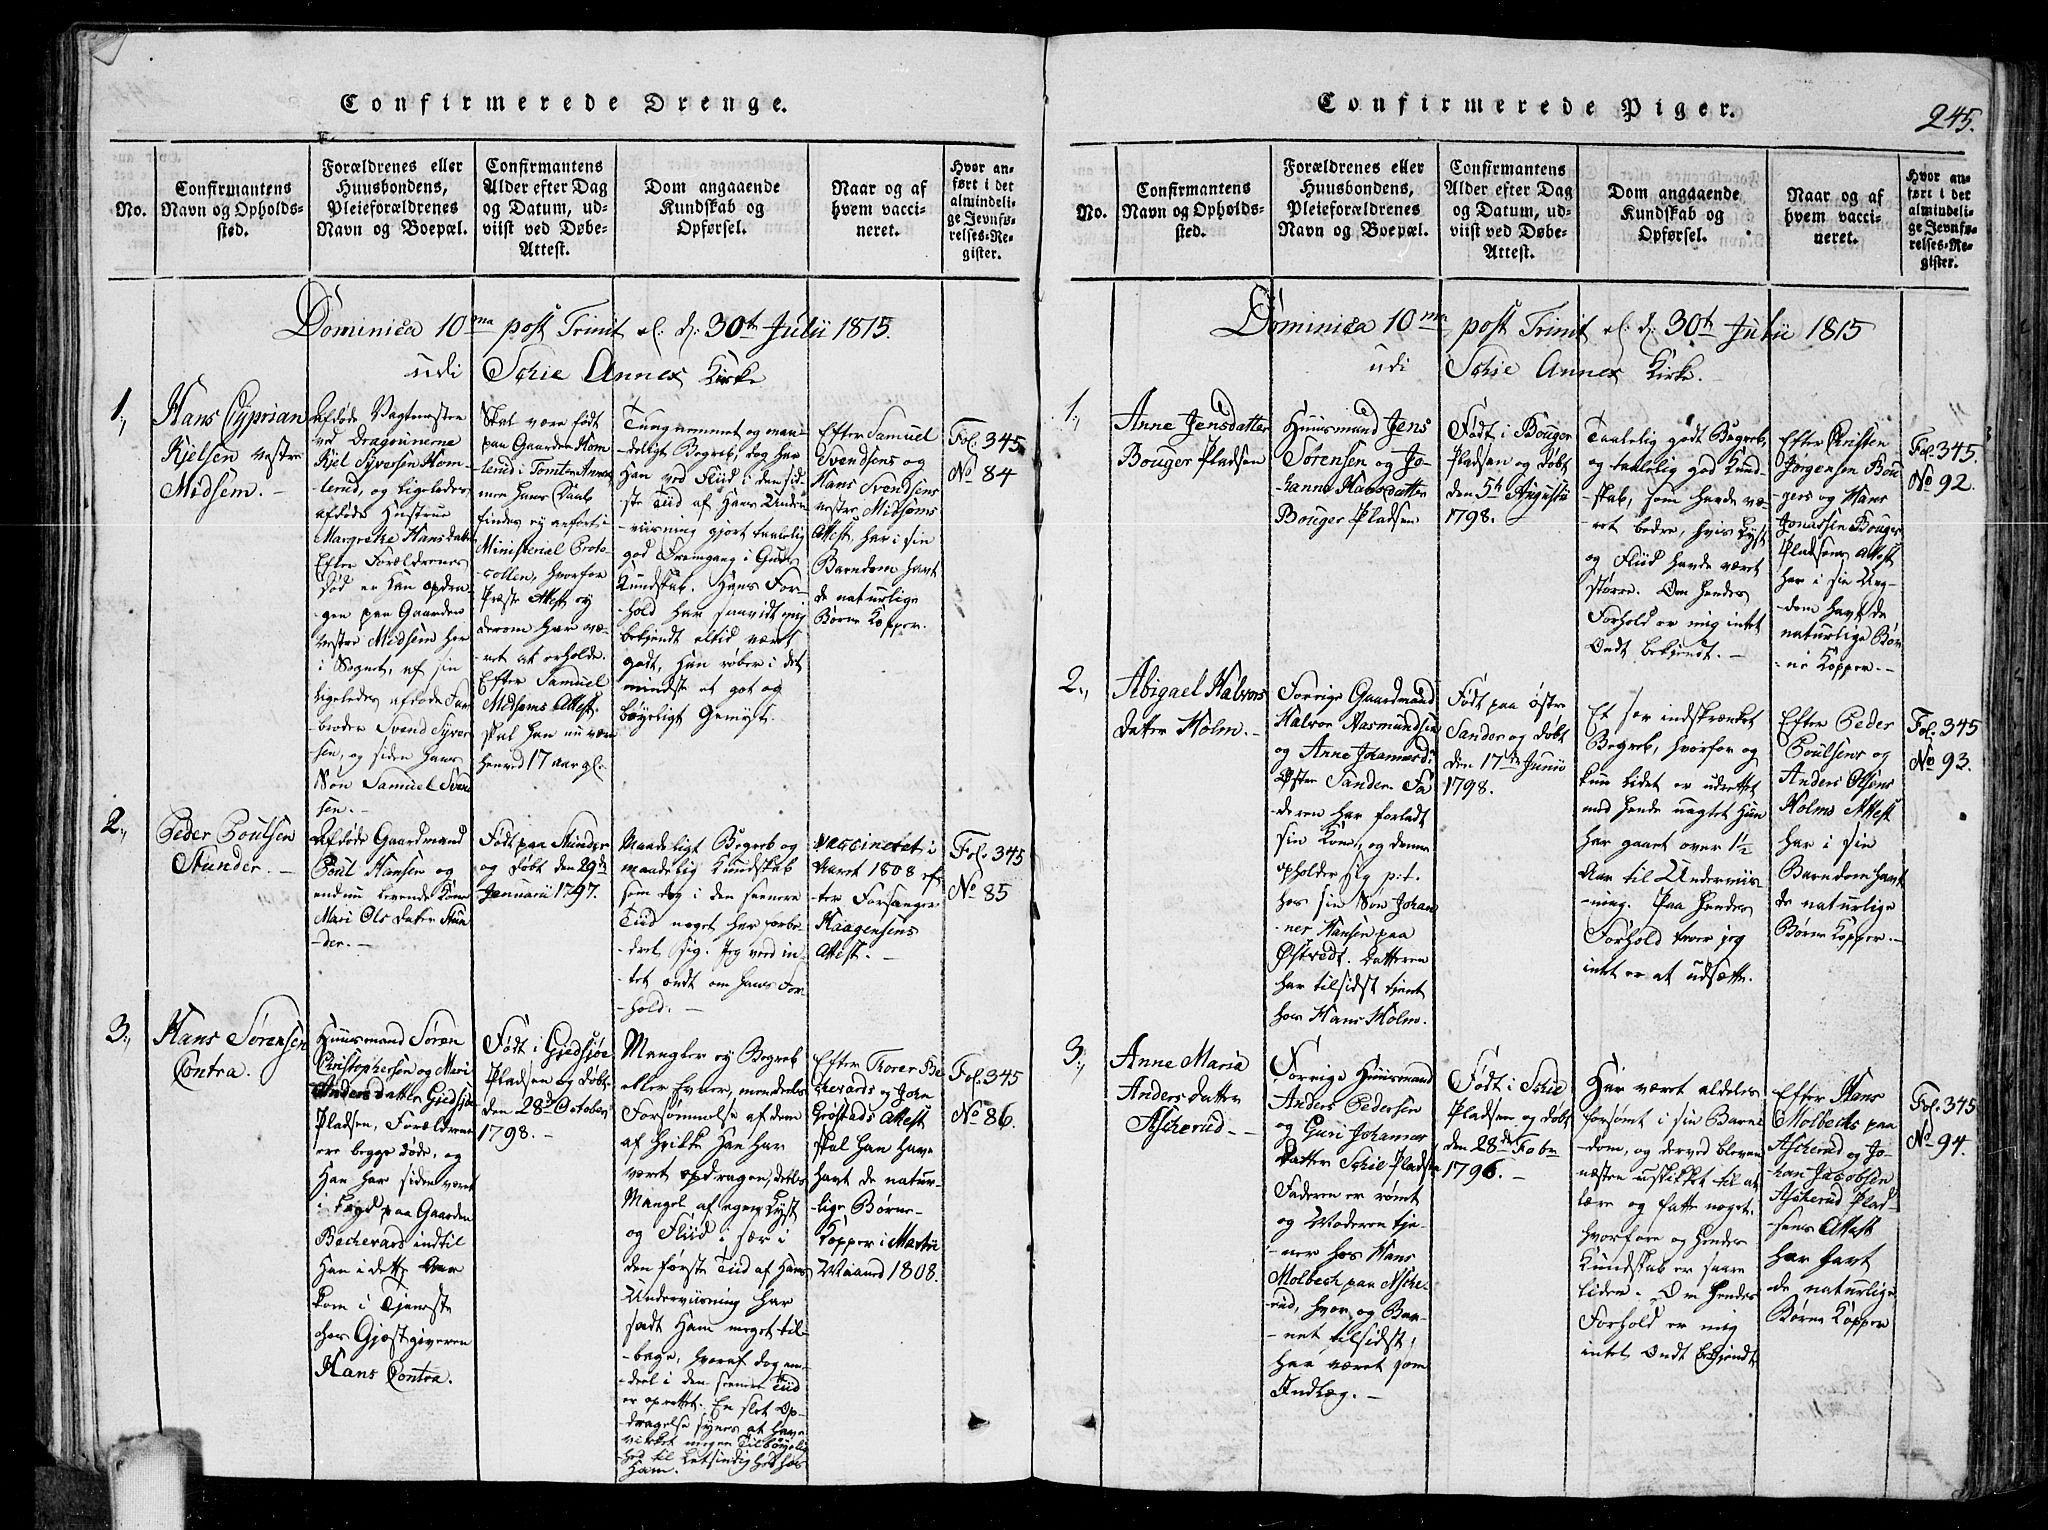 Confirmerede Drenge.
No.
Confirmantens
Navn og Opholds-
sted.
Forældrenes eller
Huusbondens,
Pleieforældrenes
Navn og Boepæl.
Confirmantens
Alder efter Dag
og Datum, ud-
viist ved Døbe-
Attest.
Dom angaaende
Kundskab og
Opførsel.
Naar og af
hvem vacci-
neret.
Hvor an-
ført i det
almindeli-
ge Jevnfø-
relses-Re-
gister.
Dominica 10ma post Trinit el: d: 30te Julii 1815.
udi Schie Annex Kirke
1.,
Hans Cyprian
Kjelsen vestre
Midsem. -
Afdøde Vagtmester
ved Dragonerne
Kjel Syversen Kom-
lerud, og ligeledes
afdøde Hustrue
Margrethe Hansdatter
Efter Forældrenes
Død er han opdra-
gen paa Gaarden
vestre Midsem her
i Sognet, af sin
ligeledes afdøde Far-
broder Svend Syver-
sen, og siden hans
Søn Samuel Svend-
sen. -
Skal være født
paa Gaarden Kom-
lerud i Tomter Annex
men hans Daab
findes ey anført i
Ministerial Proto-
collen, hvorfor
Præste Attest ey
derom har væ-
ret at erholde.
Efter Samuel
Midsems Attest
skal han nu være
henved 17 aar gl.
Tungnemmet og maa-
deligt Begreb, dog har
han ved Fliid i den sid-
ste Tid af hans Under-
viisning gjort taalelig
god Fremgang i Guds
Kundskab. Hans For-
hold har saavidt mig
bekjendt altid været
godt, han røber i det
mindste et got og
bøyeligt Gemyt.
Efter Samuel
Svendsens og
Hans Svendsens
vestre Midsems
Attest, har i sin
Barndom havt
de naturlige
Børne Kopper.
Fol: 345
No 84
2.,
Peder Poulsen
Stunder. -
Afdøde Gaardmand
Poul Hansen og
endnu levende Kone
Mari Olsdatter Stun-
der. -
Født paa Stunder
og døbt den 29de
Januarii 1797.
Maadeligt Begreb og
maadelig Kundskab
som dog i den seenere
Tiid noget har forbe-
dret sig. Jeg veed in-
tet ondt om hans For-
hold. -
vaccineret i
Aaret 1808 ef-
ter Forsanger
Haagensens
Attest. -
Fol: 345
No 85
3.,
Hans Sørensen
Contra.
Huusmand Søren
Christophersen og Mari
Andersdatter Gjedsjøe
Pladsen, Forældrene
ere begge døde, og
han har siden været
i Lægd paa Gaarden
Bechevars indtil
han i dette Aar
kom i Tjeneste
hos Gjæstgiveren
Hans Contra.
Født i Gjedsjøe
Pladsen og døbt
den 28de October
1798. -
Mangler ey Begreb
eller Evner, men deels
Forsømmelse af dem
af hvilke han har
været opdragen, deels
Mangel af egen Lyst
og Fliid i sær i
den første Tiid af hans
Underviisning har
sadt ham meget til-
bage, hvoraf dog en-
deel i den seenere Tiid
er oprettet. En slet Op-
dragelse synes at have
virket nogen Tilbøjelig-
hed til Letsindighed hos
ham.
Efter Thorer Be-
chevards og John
Grøstads Attest
skal han have
havt de natur-
lige Børne-
Kopper i Martii
Maaned 1808.
Fol: 345
No 86.
Confirmerede Piger.
245.
No.
Confirmantens
Navn og Opholds-
sted.
Forældrenes eller
Huusbondens,
Pleieforældrenes
Navn og Boepæl.
Confirmantens
Alder efter Dag
og Datum, ud-
viist ved Døbe-
Attest.
Dom angaaende
Kundskab og
Opførsel.
Naar og af
hvem vacci-
neret.
Hvor an-
ført i det
almindeli-
ge Jevnfø-
relses-Re-
gister.
Dominica 10ma post Trinit el: d: 30te Julii 1815
udi Schie Annex Kirke. -
1.,
Anne Jensdatter
Bouger Pladsen
Huusmand Jens
Sørensen og Jo-
hanne Hansdatter
Bouger Pladsen
Født i Bouger
Pladsen og døbt
den 5te Augusti
1798.
Taalelig godt Begreb,
og taalelig god Kund-
skab, som havde væ-
ret bedre, hvis Lyst
og Fliid havde været
større. Om hendes
Forhold er mig intet
Ondt bekjendt. -
Efter Christen
Jørgensen Bou-
gers og Hans
Jonassen Bouger
Pladsens Attest
har i sin Ung-
dom havt de
naturlige Bør-
ne Kopper. -
Fol: 345.
No 92.
2.,
Abigael Halvors
datter Holm. -
Forrige Gaardmand
Halvor Aasmundsen
og Anne Johannesd:
Østre Sander. Fa-
deren har forladt
sin Kone, og denne
opholder sig p:t.
hos sin Søn Johan-
nes Hansen paa
Østvedt. Datteren
har tilsidst tjent
hos Hans Holm.
Født paa østre
Sander og døbt
den 17de Junii
1798.
Et saare indskrænket
Begreb, hvorfor og
kun lidet er udrettet
med hende uagtet hun
har gaaet over 1½
Aar til Underviis-
ning. Paa hendes
Forhold troer jeg
intet er at udsætte.
Efter Peder
Poulsens og
Anders Olsens
Holms Attest
har i sin
Barndom havt
de naturlige
Børne Kopper. -
Fol: 345
No 93.
3.,
Anne Maria
Anders datter
Ascherud -
Forrige Huusmand
Anders Pedersen
og Guri Johannes
datter Schie Pladsen
Faderen er rømt
og Moderen tje-
ner hos Hans
Molbech paa Asche-
rud, hvor og Bar-
net tilsidst
har været som
Indlæg. -
Født i Schie
Pladsen og døbt
den 28de Febr
1796. -
Har været aldeles
forsømt i sin Barn-
dom, og derved bleven
næsten uskikket til at
lære og fatte noget.
hvorfore og hendes
Kundskab er saare
liden. Om hendes
Forhold er mig
intet Ondt bekjendt
Efter Hans
Molbechs paa
Ascherud og Jo-
han Jacobsen
Ascherud Plad-
sens Attest
har havt
de naturlige
Børne Kopper
Fol: 345
No 94.